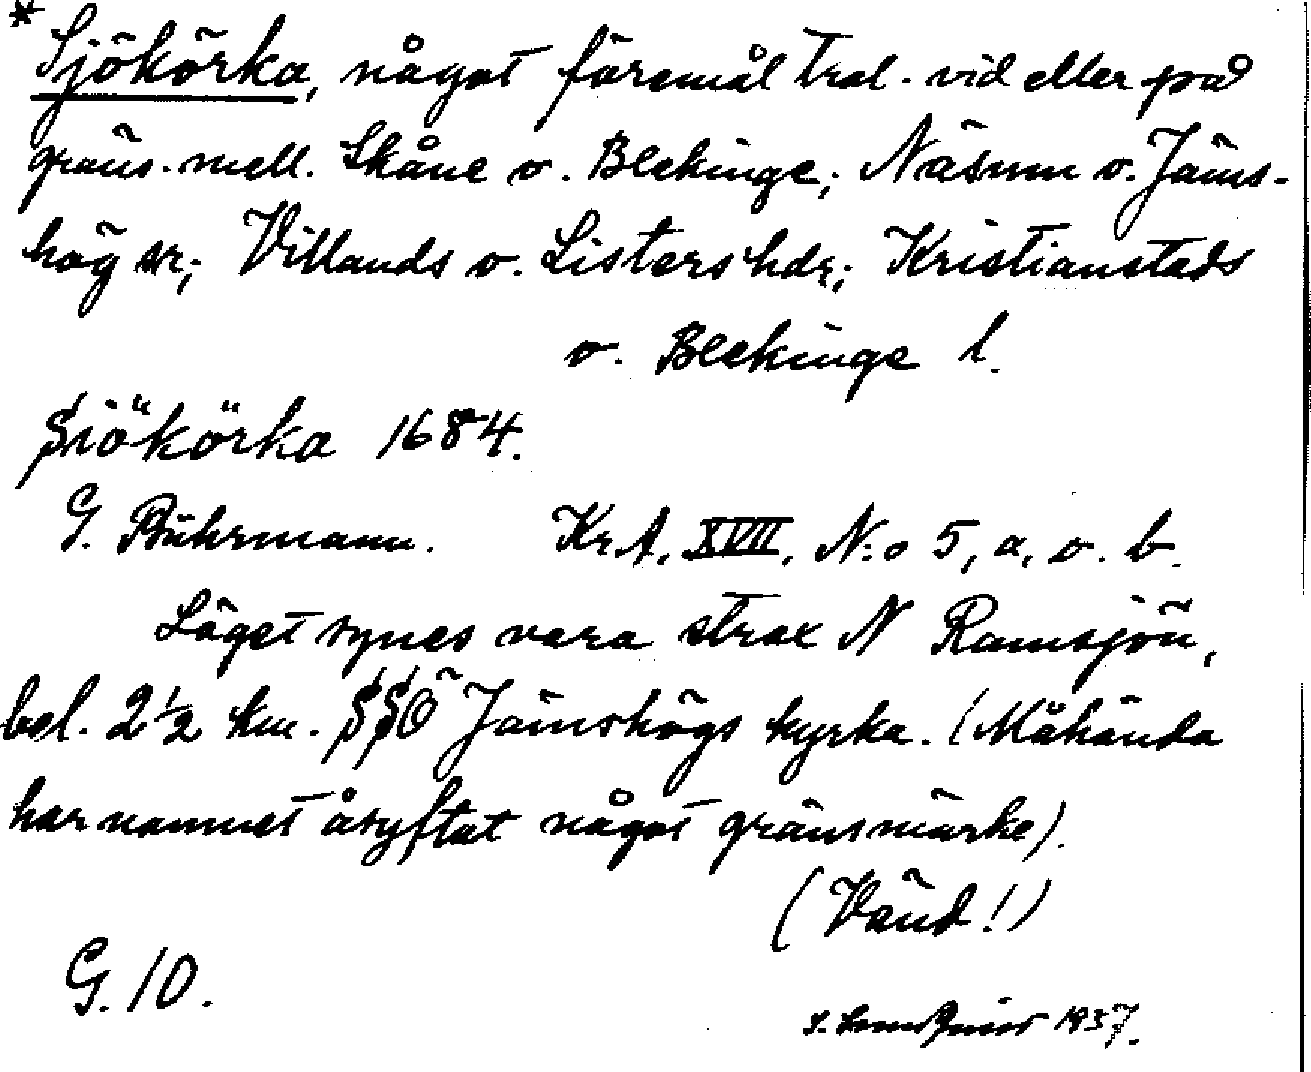 *Sjökörka, något föremål trol. vid eller på
gräns. mell. Skåne o. Blekinge; Näsum o. Jäms-
hög sr; Villands o. Listers hdr; Kristianstads
o. Blekinge l.
Siökörka 1684.
G. Buhrmann. Kr.A. XVII, N:o 5, a, o. b.
Läget synes vara strax N Ramsjön,
bel. 2½ km. SSÖ Jämshögs kyrka. (Måhända
har namnet åsyftat något gränsmärke).
(Vänd!)
G. 10.
1937.